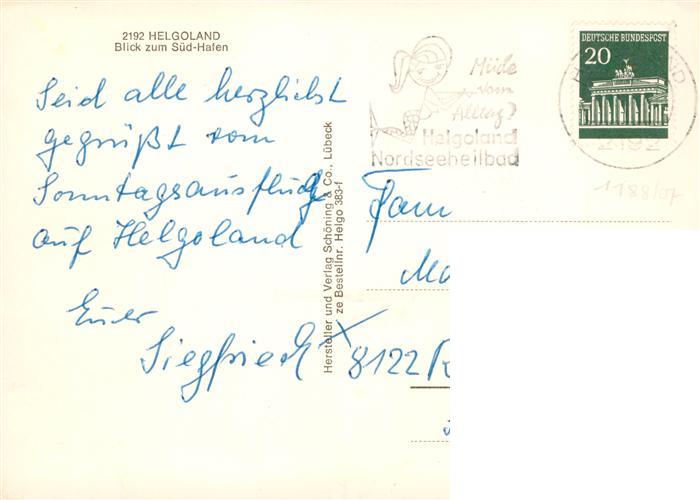 2192 HELGOLAND
Blick zum Süd-Hafen
Seid alle herzlichst
gegrüßt vom
Sonntagsausflug
auf Helgoland
Euer
Siegfried
Hersteller und Verlag Schöning & Co., Lübeck
ze Bestellnr. Helgo 383-f
Müde
vom
Alltag?
Helgoland
Nordseeheilbad
DEUTSCHE BUNDESPOST
20
2192
1188/07
Fam
8122